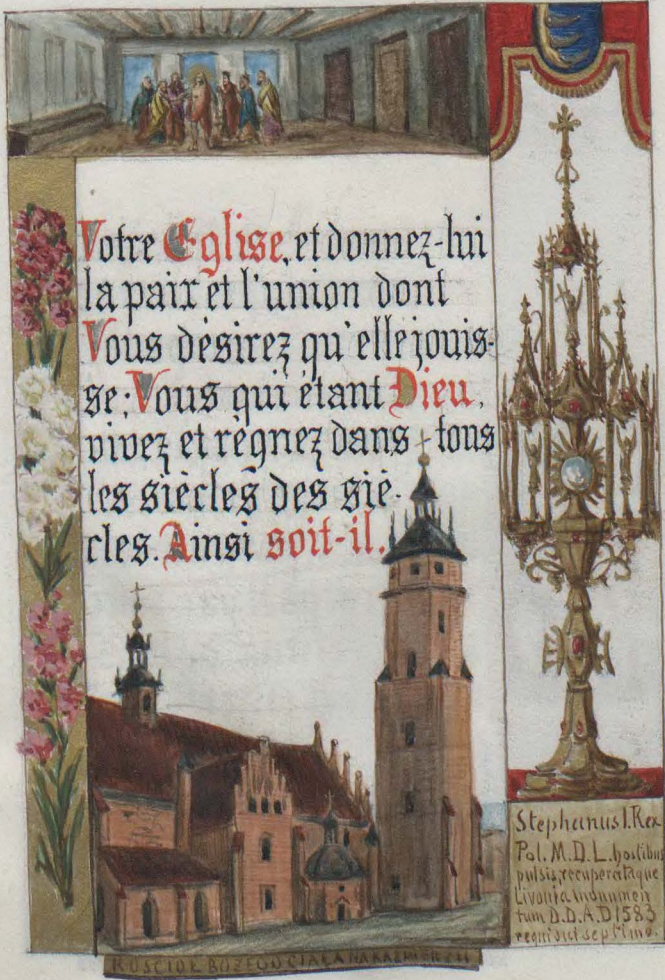 Votre Eglise, et donnez-lui
la paix et l'union dont
Vous désirez qu'elle jouis-
se; Vous qui étant Dieu,
vivez et règnez dans tous
les siècles des siè-
cles. Ainsi soit-il.
Stephanus I. Rex
Pol. M. D. L. hostibus
pulsis, recuperataque
Livonia
tum D. D. A. D 1583
regni sui septimo.
KOŚCIÓŁ BOŻEGO CIAŁA NA KAZIMIERZU